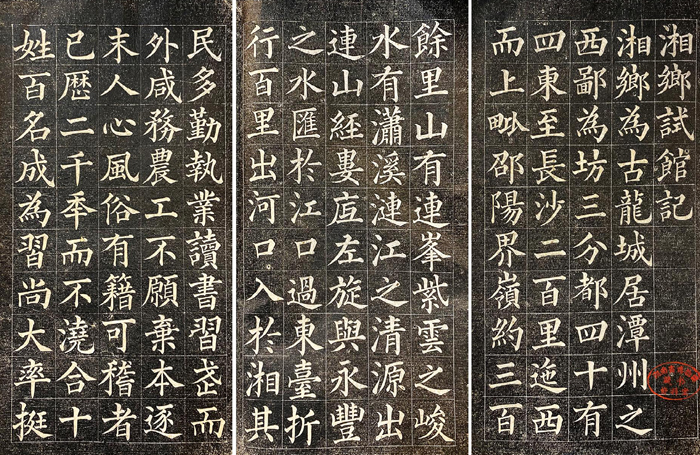 湘鄉試館記
湘鄉為古龍城居潭州之
西鄙為坊三分都四十有
四東至長沙二百里迤西
而上毗邵陽界嶺約三百
餘里山有連峯紫雲之峻
水有瀟溪漣江之清源出
連山經婁底左旋與永豐
之水匯於江口過東臺折
行百里出河口入於湘其
民多勤執業讀書習武而
外咸務農工不願棄本逐
末人心風俗有籍可稽者
已歷二千年而不澆合十
姓百名成為習尚大率挺